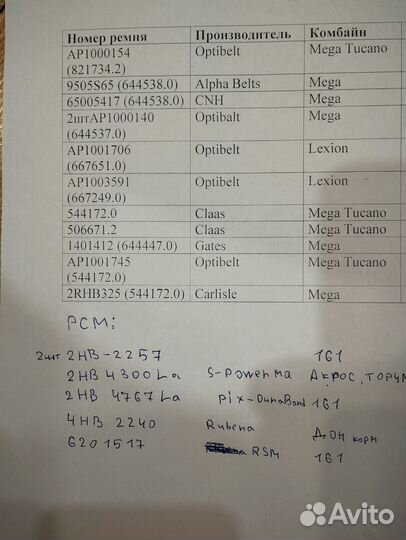 Номер ремня Производитель Комбайн
AP1000154 Optibelt Mega Tucano
(821734.2)
9505S65 (644538.0) Alpha Belts Mega
65005417 (644538.0) CNH Mega
2штAP1000140 Optibalt Mega
(644537.0)
AP1001706 Optibelt Lexion
(667651.0)
AP1003591 Optibelt Lexion
(667249.0)
544172.0 Claas Mega Tucano
506671.2 Claas Mega Tucano
1401412 (644447.0) Gates Mega
AP1001745 Optibelt Mega Tucano
(544172.0)
2RHB325 (544172.0) Carlisle Mega
РСМ:
2шт 2HB-2257 161
2HB 4300La S-Power Ma Акрос, Торум
2HB 4767La Pix-DuraBand 161
4HB 2240 Rubena Дон корм
6201517 RSM 161
Avito